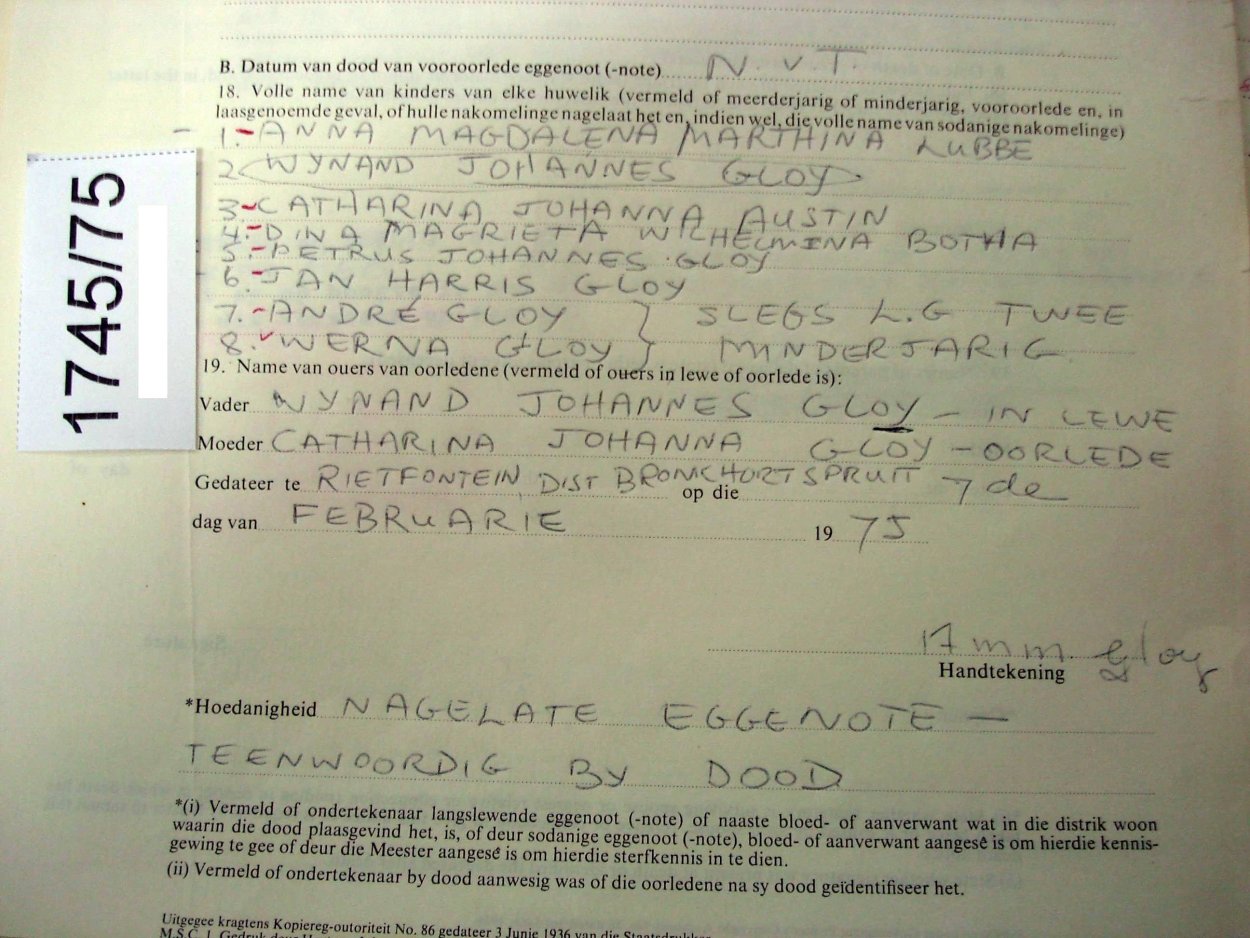 B. Datum van dood van vooroorlede eggenoot (-note) N.V.T.
18. Volle name van kinders van elke huwelik (vermeld of meerderjarig of minderjarig, vooroorlede en, in
laasgenoemde geval, of hulle nakomelinge nagelaat het en, indien wel, die volle name van sodanige nakomelinge)
1. ANNA MAGDALENA MARTHINA LUBBE
2 WYNAND JOHANNES GLOY
3 CATHARINA JOHANNA AUSTIN
4. DINA MAGRIETA WILHELMINA BOTHA
5. PETRUS JOHANNES GLOY
6. JAN HARRIS GLOY
7. ANDRÉ GLOY } SLEGS L.G TWEE
8. WERNA GLOY } MINDERJARIG
19. Name van ouers van oorledene (vermeld of ouers in lewe of oorlede is):
Vader WYNAND JOHANNES GLOY – IN LEWE
Moeder CATHARINA JOHANNA GLOY – OORLEDE
Gedateer te RIETFONTEIN, DIST BRONCHORTSPRUIT op die 7de
dag van FEBRUARIE 19 75
Gloy
Handtekening
*Hoedanigheid NAGELATE EGGENOTE –
TEENWOORDIG BY DOOD
*(i) Vermeld of ondertekenaar langslewende eggenoot (-note) of naaste bloed- of aanverwant wat in die distrik woon
waarin die dood plaasgevind het, is, of deur sodanige eggenoot (-note), bloed- of aanverwant aangesê is om hierdie kennis-
gewing te gee of deur die Meester aangesê is om hierdie sterfkennis in te dien.
(ii) Vermeld of ondertekenaar by dood aanwesig was of die oorledene na sy dood geïdentifiseer het.
Uitgegee kragtens Kopiereg-outoriteit No. 86 gedateer 3 Junie 1936 van die Staatsdrukker
M.S.C. 1. Gedruk deur
1745/75